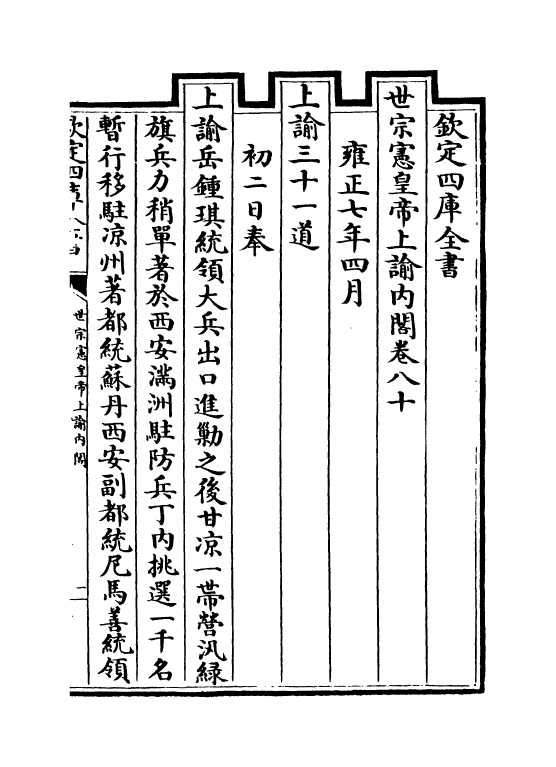 欽定四庫全書
世宗憲皇帝上諭内閣卷八十
雍正七年四月
上諭三十一道
初二日奉
上諭岳鍾琪統領大兵出口進勦之後甘凉一帶營汛緑
旗兵力稍單著於西安滿洲駐防兵丁内挑選一千名
暫行移駐凉州著都統蘇丹西安副都統尼馬善統領
欽定四庫全書
世宗憲皇帝上諭内閣